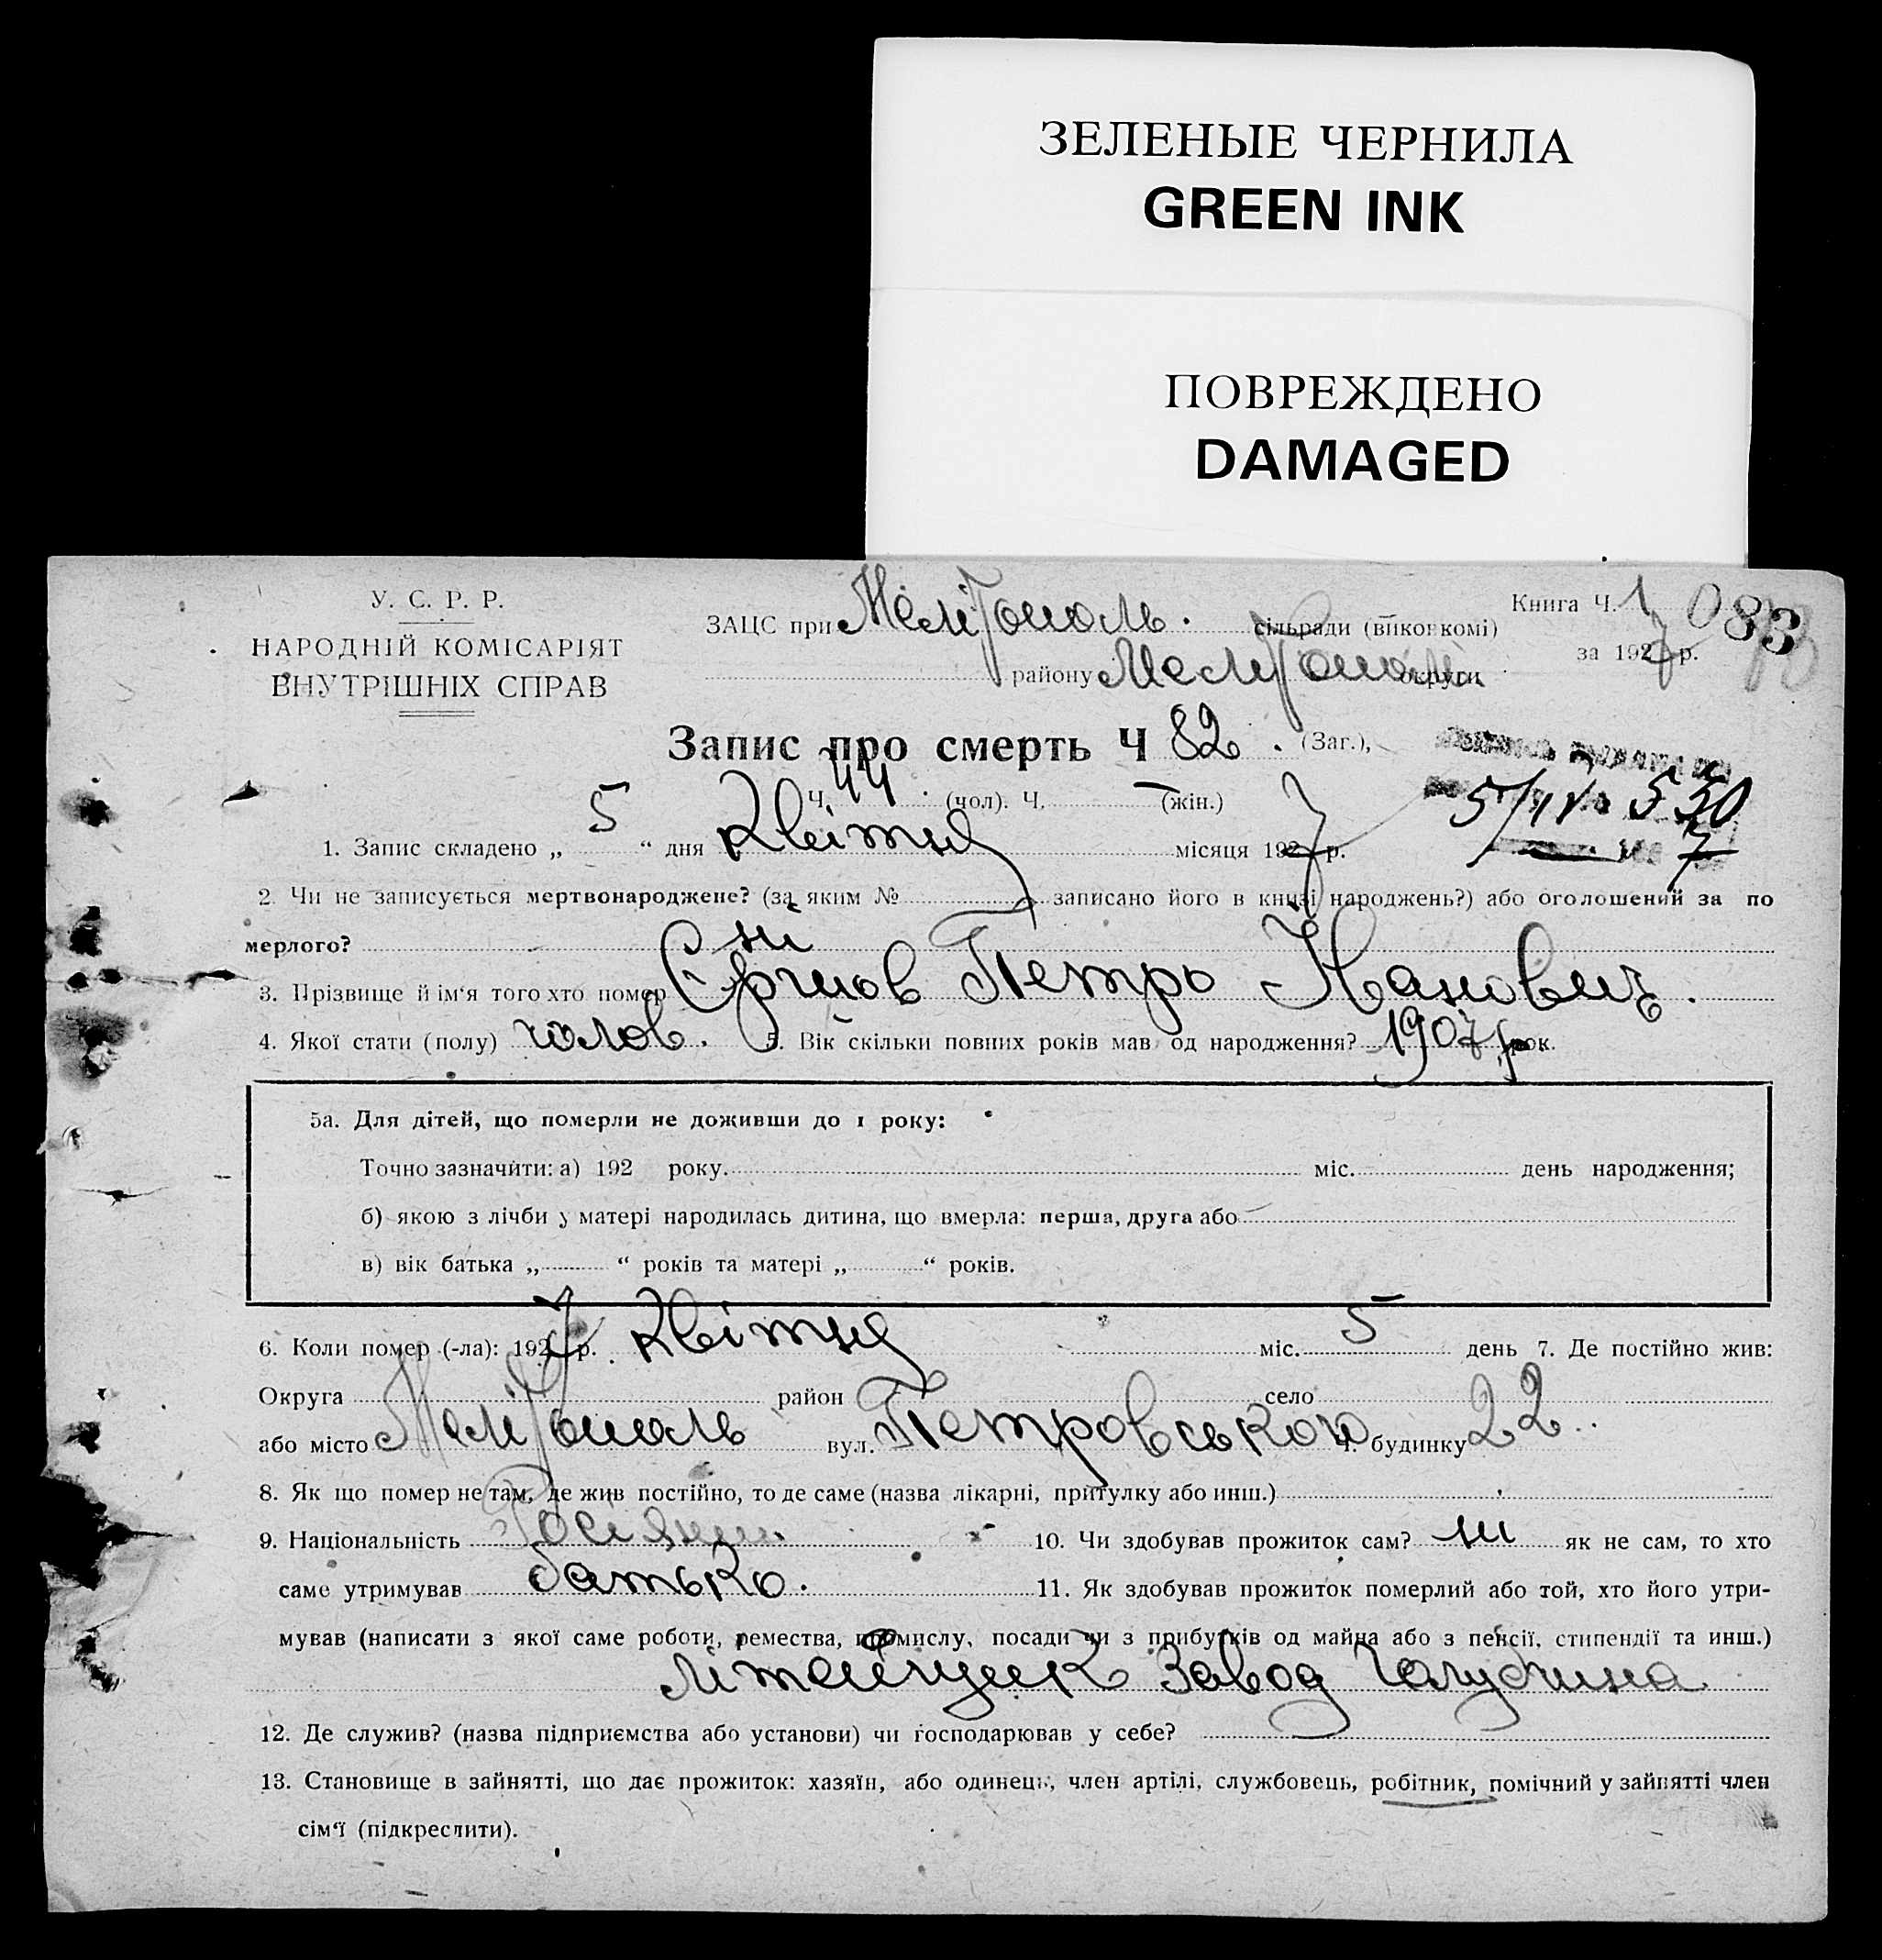 ЗЕЛЕНЫЕ ЧЕРНИЛА
GREEN INK
ПОВРЕЖДЕНО
DAMAGED
У. С. Р. Р.
НАРОДНІЙ КОМІСАРІЯТ
ВНУТРІШНІХ СПРАВ
ЗАЦС при Мелітополь. сільради (виконкомі)
району округи
Книга Ч. 1
083
за 1927 р.
Запис про смерть Ч 82. (Заг.),
Ч. 44. (чол). Ч. — (жін.)
1. Запис складено „ 5 “ дня Квітня місяця 1927 р.
2. Чи не записується мертвонароджене? (за яким № записано його в книзі народжень?) або оголошений за по
мерлого? ні
3. Прізвище й ім‘я того хто помер Петро Іванович.
4. Якої стати (полу) чолов. 5. Вік скільки повних років мав од народження? 1907 р. рок.
5а. Для дітей, що померли не доживши до 1 року:
Точно зазначити: а) 192 року. міс. день народження;
б) якою з лічби у матері народилась дитина, що вмерла: перша, друга або
в) вік батька „ “ років та матері „ “ років.
6. Коли помер (-ла): 1927 р. Квітня міс. 5 день 7. Де постійно жив:
Округа район село
або місто Мелітополь вул. Петровського Ч. будинку 22.
8. Як що помер не там, де жив постійно, то де саме (назва лікарні, притулку або инш.)
9. Національність Росіянин 10. Чи здобував прожиток сам? ні як не сам, то хто
саме утримував батько. 11. Як здобував прожиток померлий або той, хто його утри-
мував (написати з якої саме роботи, ремества, промислу, посади чи з прибутків од майна або з пенсії, стипендії та инш.)
Завод
12. Де служив? (назва підприємства або установи) чи господарював у себе?
13. Становище в зайнятті, що дає прожиток: хазяїн, або одинець, член артілі, службовець, робітник, помічний у зайнятті член
сім‘ї (підкреслити).